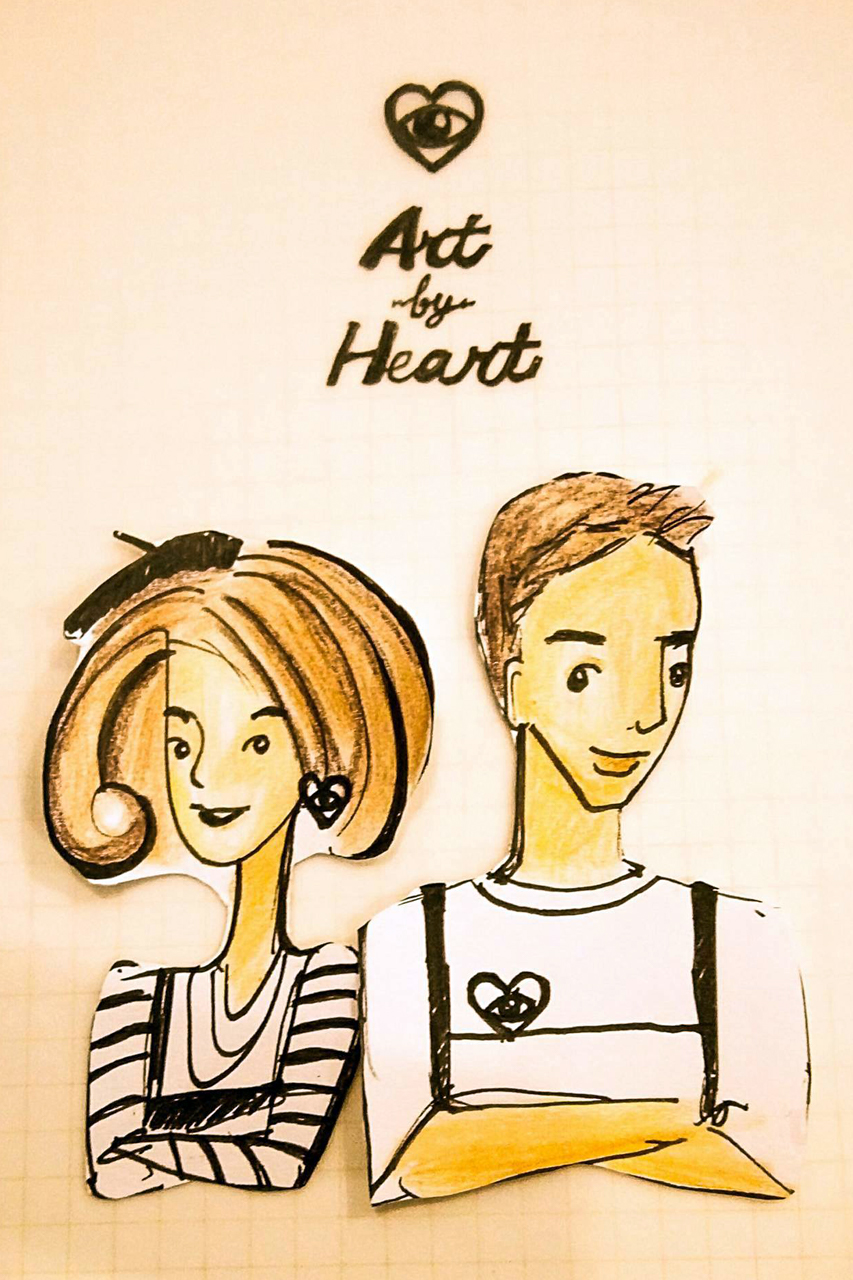 Art
by
Heart